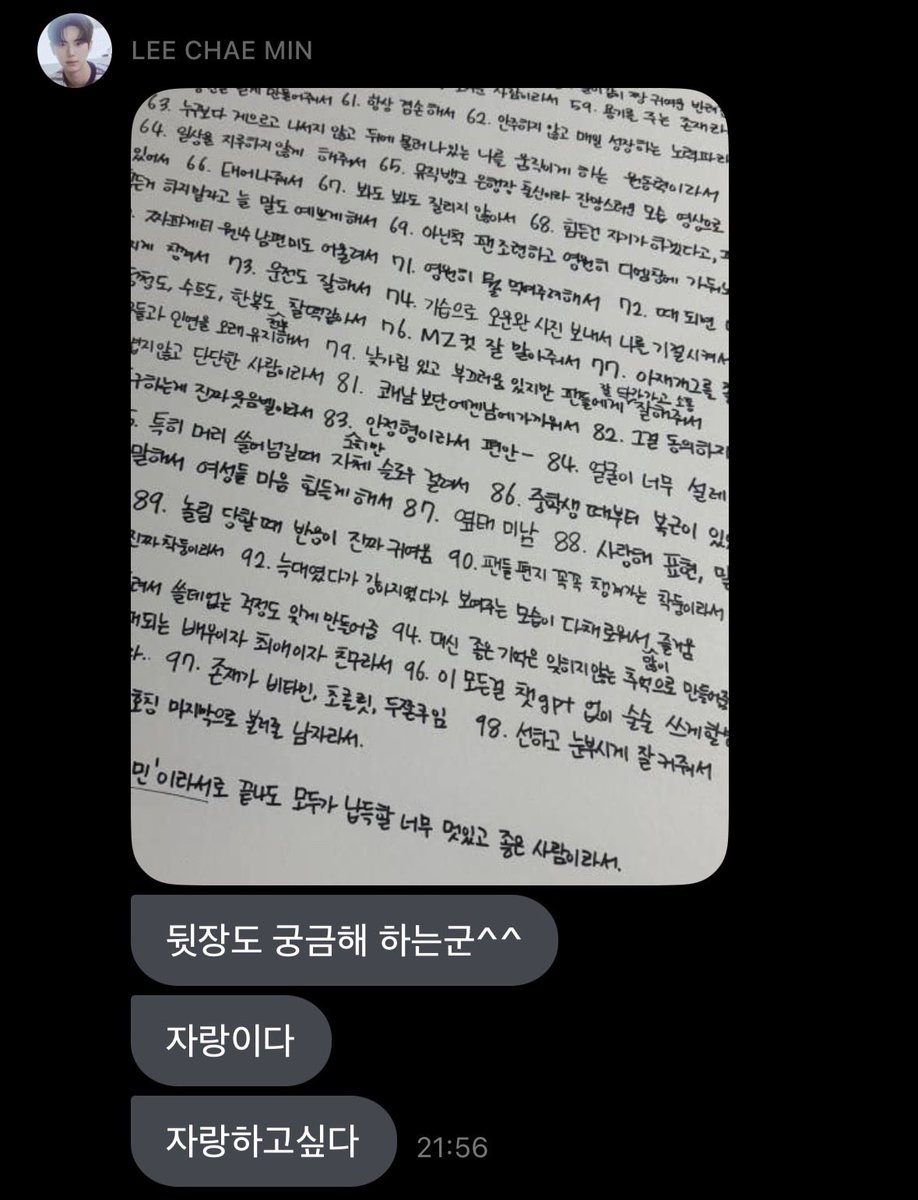 LEE CHAE MIN
만들어줘서 61. 항상 겸손해서 62. 안주하지 않고 매일 성장하는 노력파라
사람이라서 59. 용기를 주는 존재라
63. 누구보다 게으르고 나서지 않고 뒤에 물러나있는 나를 움직이게 하는 원동력이라서
64. 일상을 지루하지않게 해줘서 65. 뮤직뱅크 은행장 출신이라 잔망스러운 모습 영상으로
있어서 66. 태어나줘서 67. 봐도 봐도 질리지 않아서 68. 힘든건 자기가 하겠다고,
하지말라고 늘 말도 예쁘게해서 69. 아닌척 팬조련하고 영원히 디엠창에 가둬
짜파게티 원수 남편미도 어울려서 71. 영원히 뭘 먹여주려해서 72. 때 되면
챙겨서 73. 운전도 잘해서 74. 기습으로 오운완 사진 보내서 나를 기절시켜서
수트도, 한복도 찰떡같아서 76. MZ컷 잘 말아주서 77. 아재개그를
인연을 오래 유지해서 79. 낯가림 있고 부끄러움 있지만 팬들에게 잘해줘서
않고 단단한 사람이라서 81. 쾌남 보단 에겐남에 가까워서 82. 그걸 동의하지
하는게 진짜 웃음벨이라서 83. 안정형이라서 편안- 84. 얼굴이 너무 설레
특히 머리 쓸어넘길때 자체 슬로우 걸려서 86. 중학생 때부터 복근이 있
말해서 여성들 마음 힘들게 해서 87. 옆태 미남 88. 사랑해 표현,
89. 놀림 당할 때 반응이 진짜 귀여움 90. 팬들 편지 꼭꼭 챙겨가는 착둥이라서
진짜 착둥이라서 92. 늑대였다가 강아지였다가 보여주는 모습이 다채로워서 즐거움
쓸데없는 걱정도 잊게 만들어줌 94. 대신 좋은 기억은 잊히지않는 추억으로 만들어줌
배우이자 최애이자 친구라서 96. 이 모든걸 챗gpt 없이 술술 쓰게할
97. 존재가 비타민, 초콜릿, 두쫀쿠임 98. 선하고 눈부시게 잘 커줘서
호칭 마지막으로 불러줄 남자라서.
민'이라서로 끝나도 모두가 납득할 너무 멋있고 좋은 사람이라서.
뒷장도 궁금해 하는군^^
자랑이다
자랑하고싶다
21:56